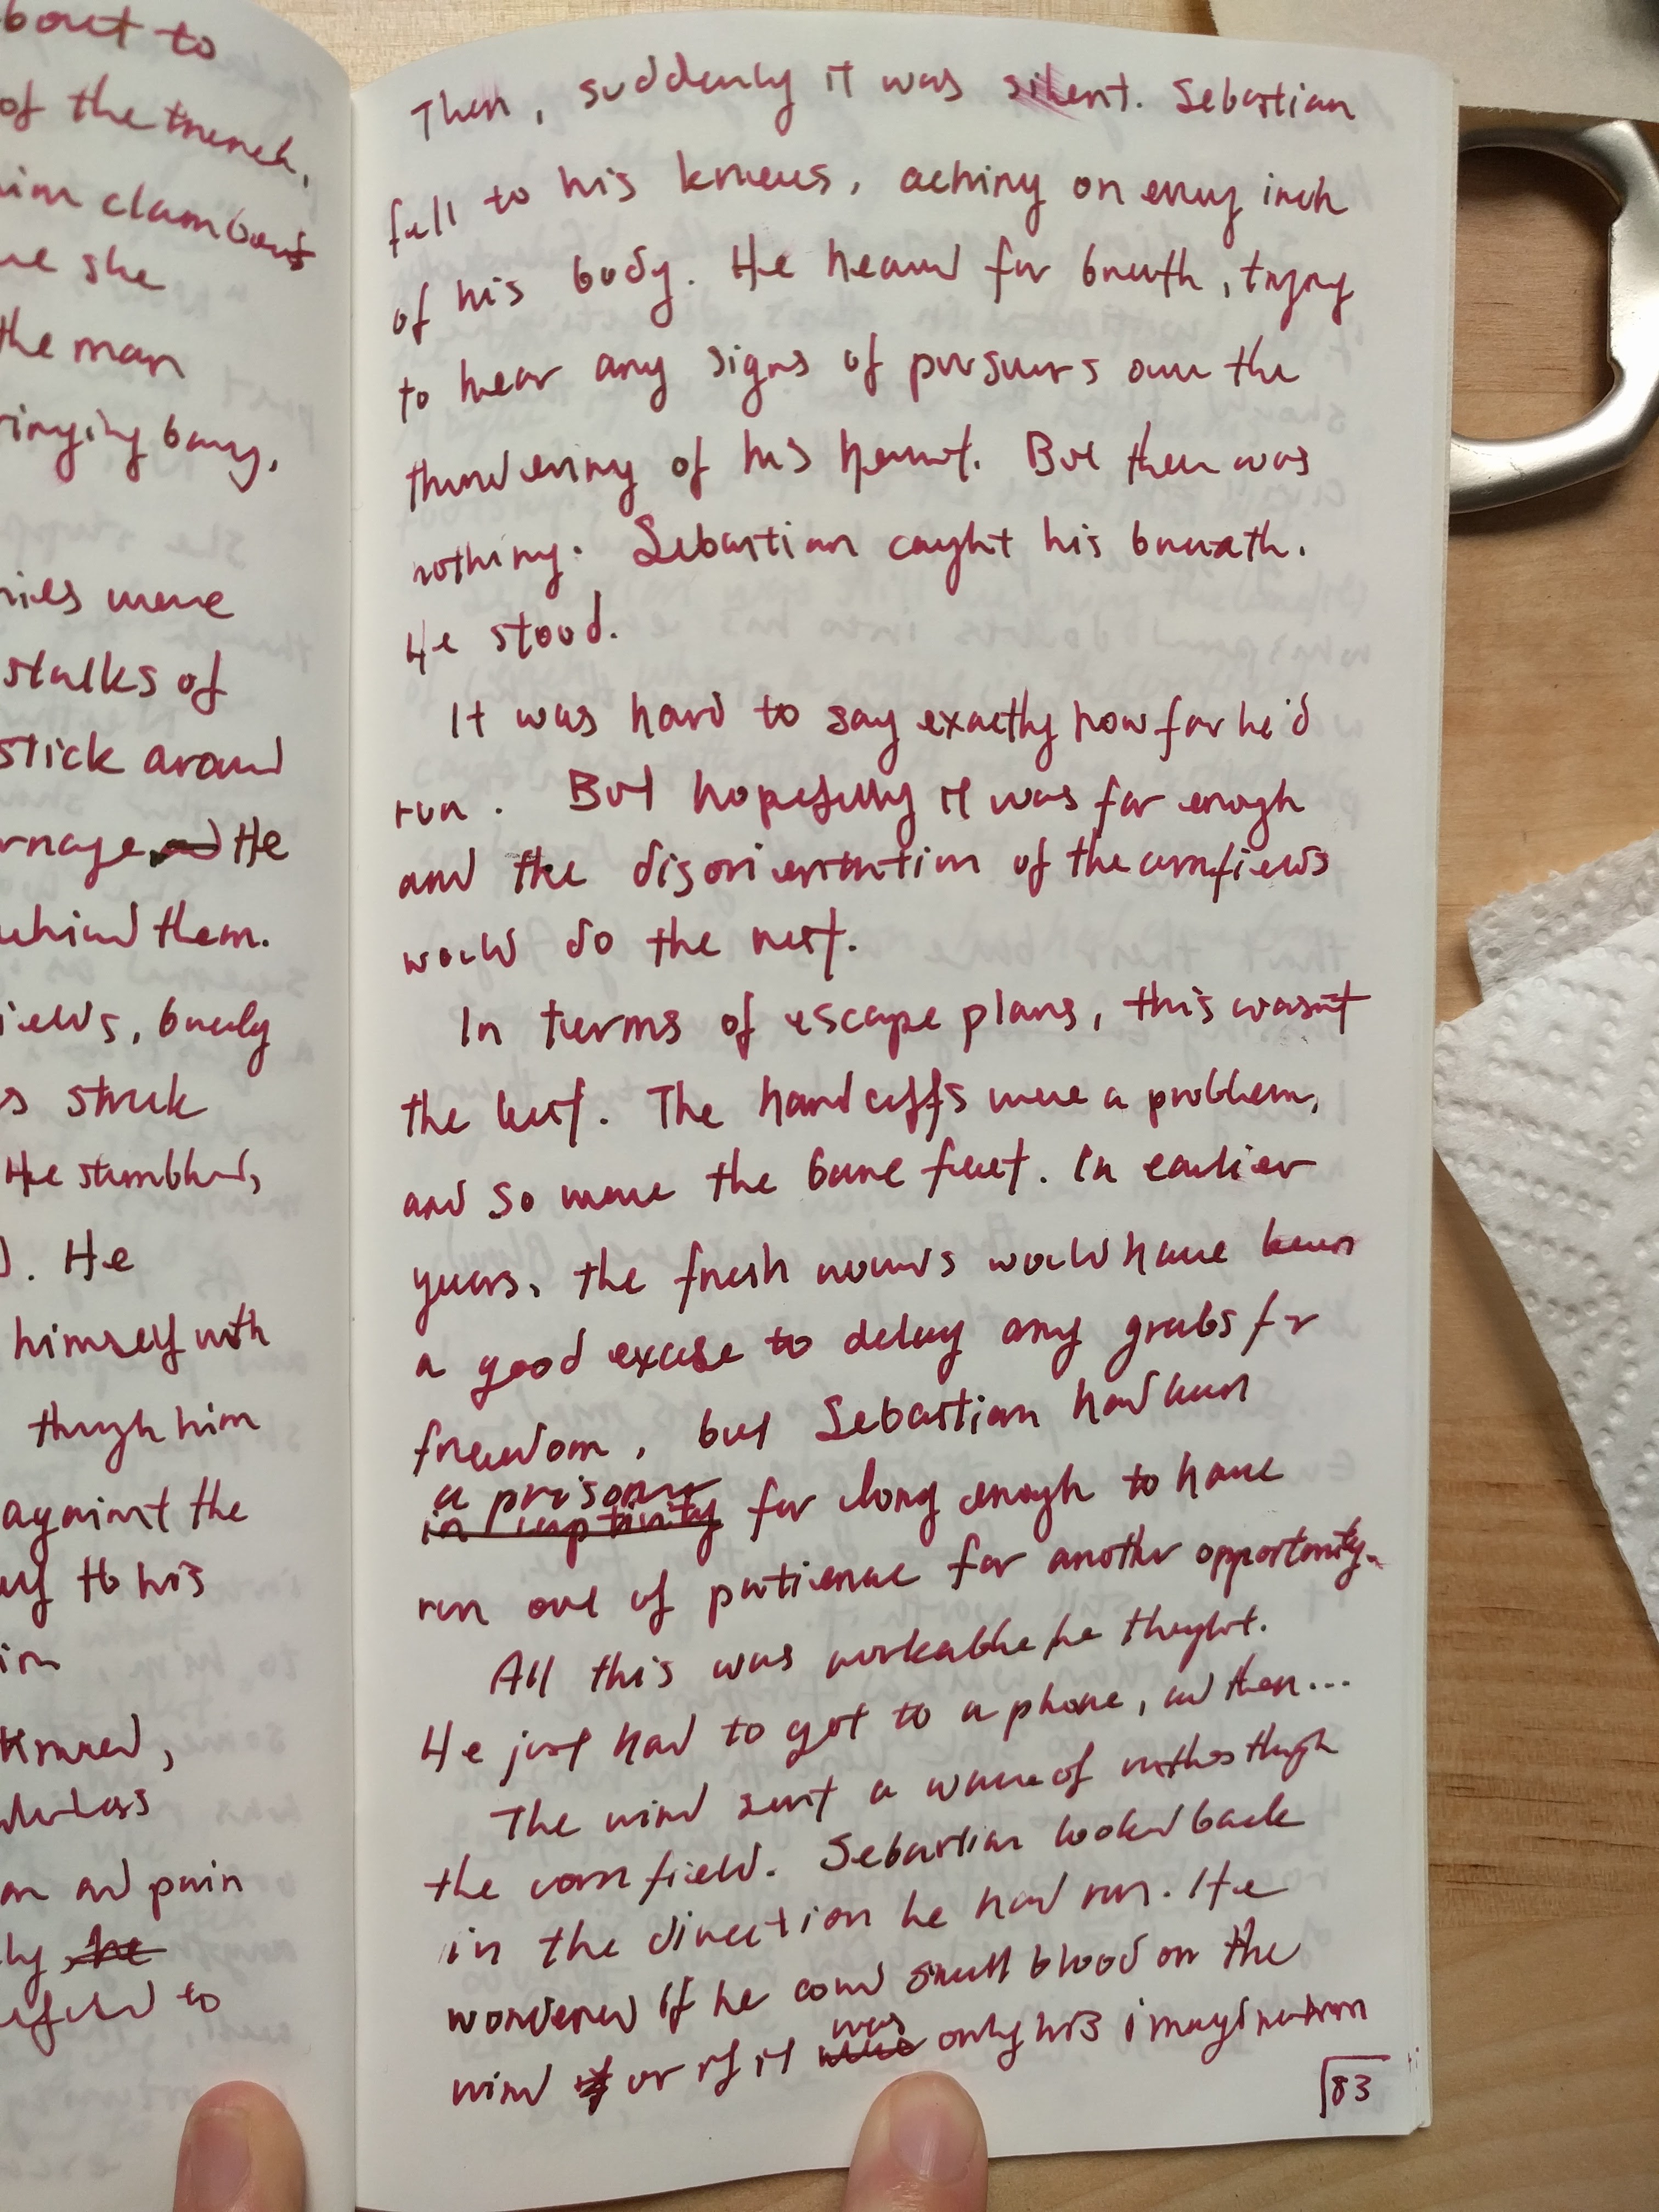 bout to
of the trench,
him clambour
ve she
the man
ringing bang,
ries were
stalks of
stick around
rnage, and He
behind them.
ields, barely
s struck
He stumbled,
). He
himself with
though him
against the
to his
in
an and pain
ly he
to
Then, suddenly it was silent. Sebastian
fell to his knees, aching on every inch
of his body. He heaved for breath, trying
to hear any signs of pursuers over the
thundering of his heart. But there was
nothing. Sebastian caught his breath.
He stood.
It was hard to say exactly how far he'd
run. But hopefully it was far enough
and the disorientation of the cornfields
would do the rest.
In terms of escape plans, this wasn't
the best. The handcuffs were a problem,
and so were the bare feet. In earlier
years, the fresh wounds would have been
a good excuse to delay any grabs for
freedom, but Sebastian had been
a prisoner
in captivity for long enough to have
run out of patience for another opportunity.
All this was workable, he thought.
He just had to get to a phone, and then...
The wind sent a wave of through
the cornfield. Sebastian looked back
in the direction he had run. He
wondered if he could smell blood on the
was
wind if or if it were only his imagination
83